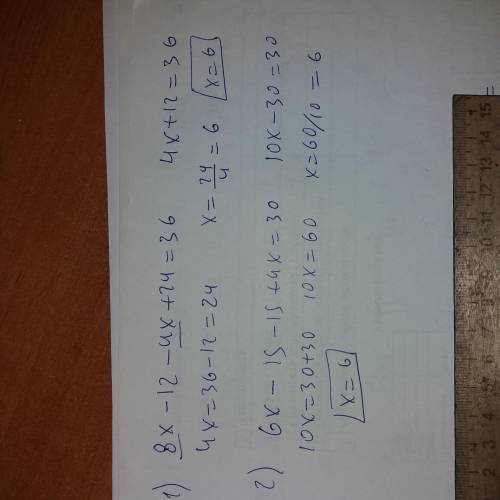 1) 8x - 12 - 4x + 24 = 36 4x + 12 = 36
4x = 36 - 12 = 24 x = 24/4 = 6 x = 6
2) 6x - 15 - 15 + 4x = 30 10x - 30 = 30
10x = 30 + 30 10x = 60 x = 60/10 = 6
x = 6
5 6 7 8 9 10 11 12 13 14 15